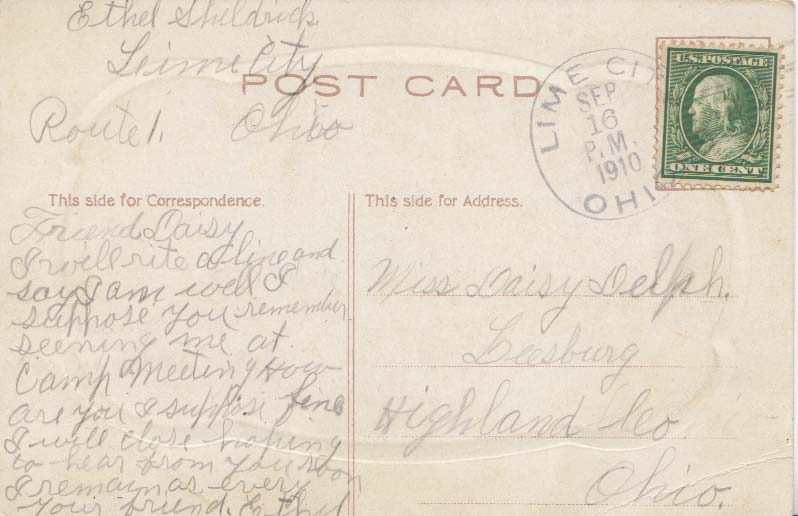 Ethel Sheldrick.
Leime City
POST CARD
Route 1. Ohio
LIME CITY
SEP
16
P.M.
1910
OHIO
U.S. POSTAGE
ONE CENT
This side for Correspondence.
Friend Daisy
I will rite a line and
say I am well I
suppose you remember
seening me at
Camp Meeting How
are you I suppose fine
I will close hoping
to hear from you soon
I remain as every
your friend. Ethel
This side for Address.
Miss Daisy Delph.
Leesburg
Highland Co
Ohio.